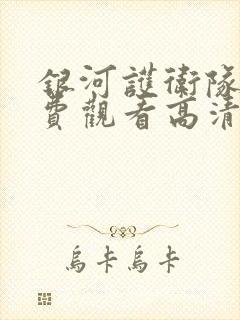 銀河護衛隊
費觀看高清
烏卡烏卡